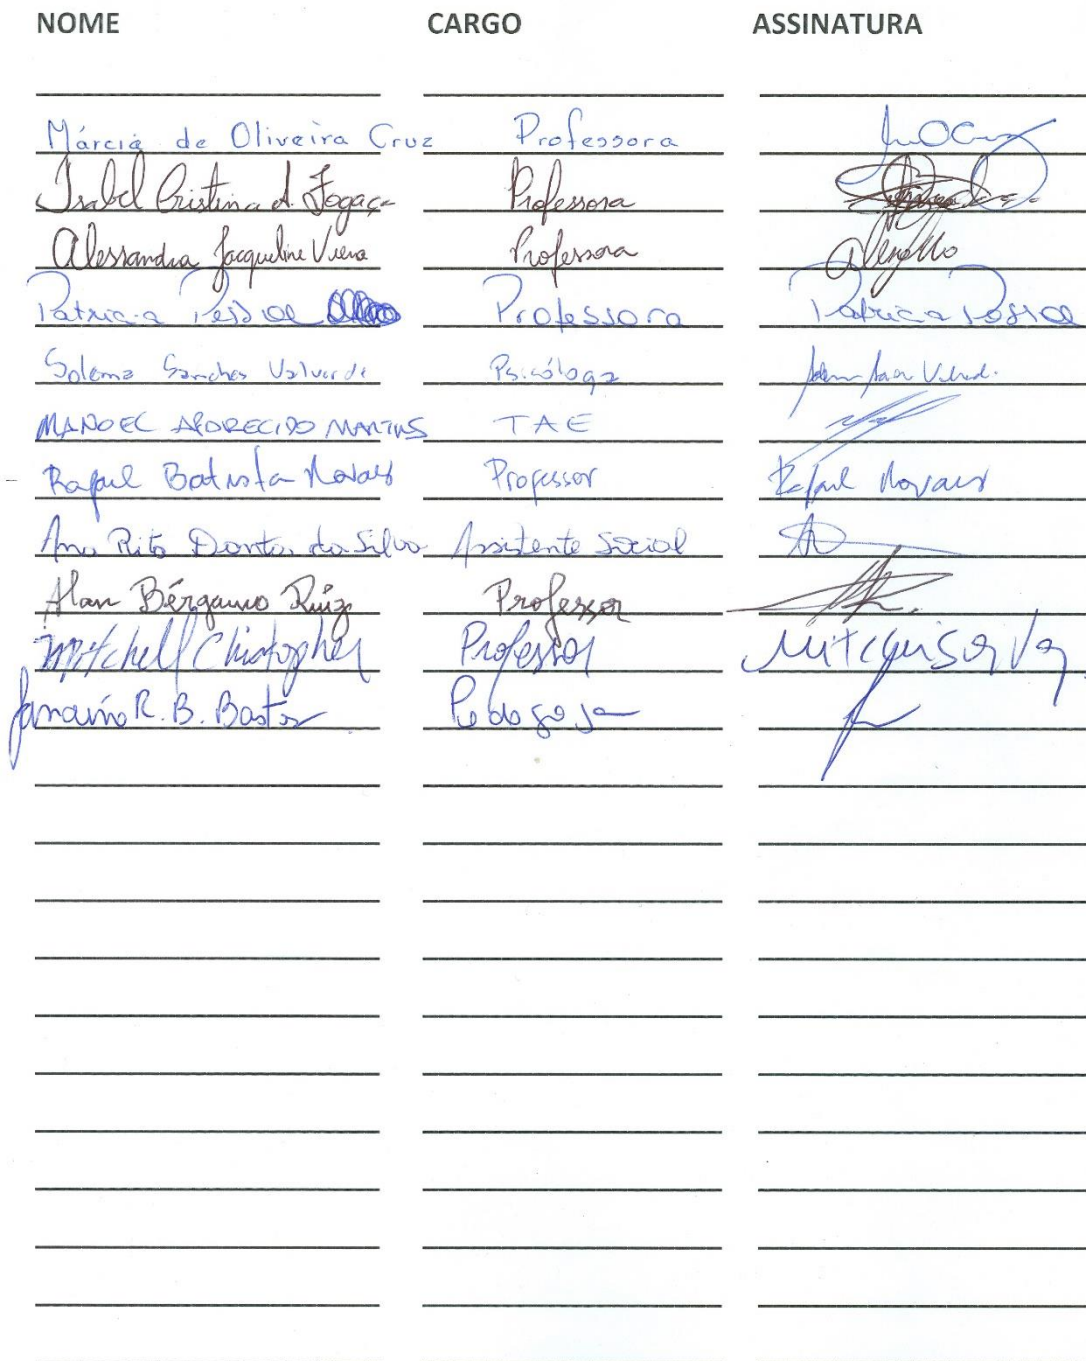 NOME CARGO ASSINATURA
Márcia de Oliveira Cruz Professora
Isabel Cristina A. Fogaça Professora
Alessandra Jacqueline Vieira Professora
Patricia Pessoa Professora Patricia Pessoa
Solema Sanches Valverde Psicóloga
MANOEL APARECIDO MARTINS TAE
Rafael Batista Novaes Professor Rafael Novaes
Ana Rita Dantas da Silva Assistente Social
Alan Bérgamo Ruiz Professor
Mitchell Christopher Professor
Janaína R. B. Bastos Pedagoga